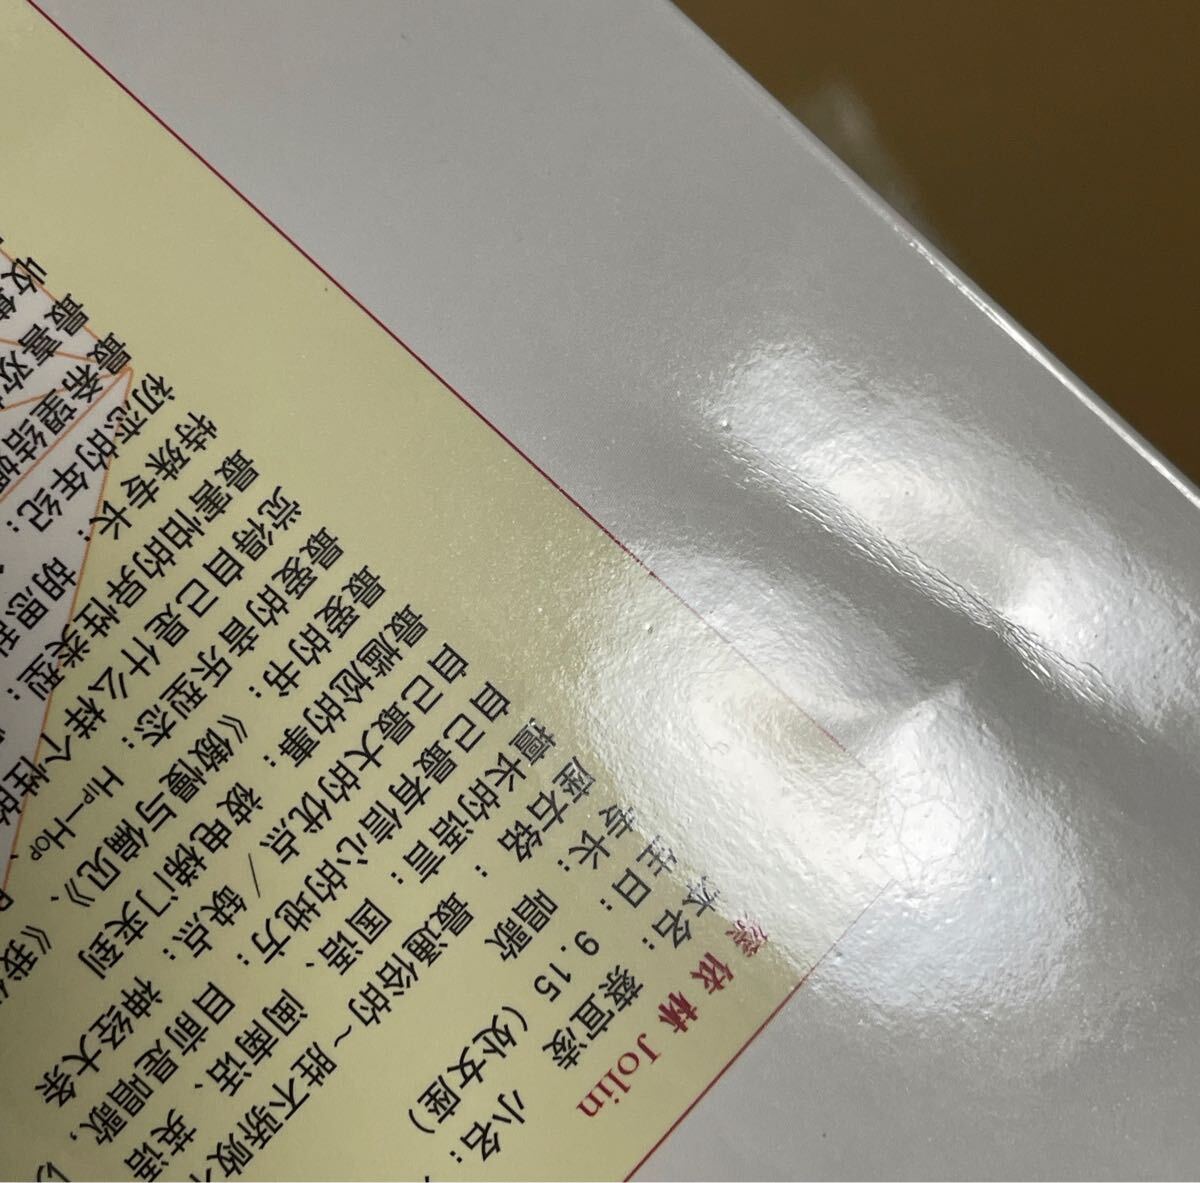 蔡依林 Jolin
本名：蔡宜凌 小名：
生日：9.15（处女座）
专长：唱歌
座右铭：最通俗的～胜不骄败不
擅长的语言：国语、闽南语、英语
自己最有信心的地方：目前是唱歌，
自己最大的优点／缺点：神经大条
最尴尬的事：被电梯门夹到
最爱的书：《傲慢与偏见》、《我
最爱的音乐型态：HIP-HOP、
觉得自己是什么样个性的
最害怕的异性类型：
特殊专长：胡思
初恋的年纪：
最希望结婚
最喜欢
收